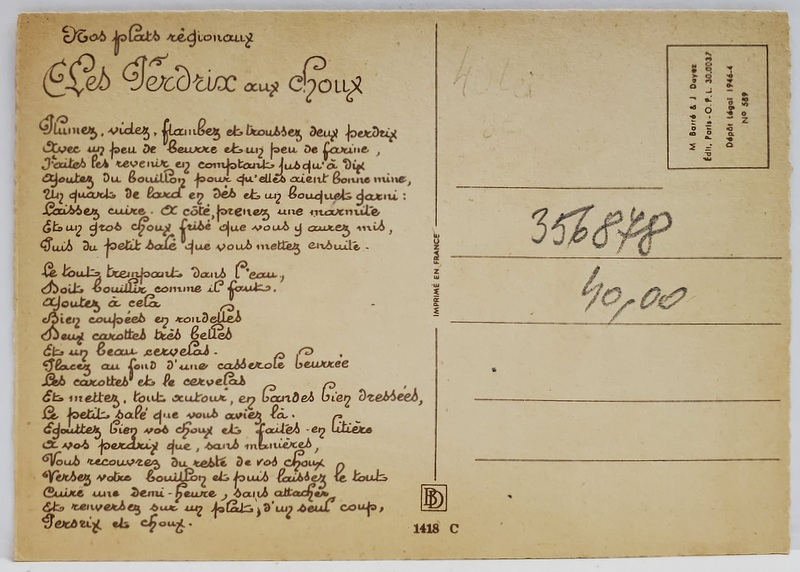 Nos plats régionaux
Les Perdrix aux choux
Plumez, videz, flambez et troussez deux perdrix
Avec un peu de beurre et un peu de farine,
Faites les revenir en comptant jusqu'à dix
Ajoutez du bouillon pour qu'elles aient bonne mine,
Un quart de lard en dés et un bouquet garni :
Laissez cuire. A côté, prenez une marmite
Et un gros choux frisé que vous y aurez mis,
Puis du petit salé que vous mettez ensuite.
Le tout trempant dans l'eau,
Doit bouillir comme il faut.
Ajoutez à cela
Bien coupées en rondelles
Deux carottes très belles
Et un beau cervelas.
Placez au fond d'une casserole beurrée
Les carottes et le cervelas
Et mettez, tout autour, en bandes bien dressées,
Le petit salé que vous aviez là.
Egouttez bien vos choux et faites-en litière
A vos perdrix que, sans manières,
Vous recouvrez du reste de vos choux
Versez votre bouillon et puis laissez le tout
Cuire une demi-heure, sans attacher,
Et renversez sur un plat, d'un seul coup,
Perdrix et choux.
IMPRIMÉ EN FRANCE
BD
1418 C
M. Barré & J. Dayez
Édit. Paris - O.P.L. 30.0037
Dépôt Légal 1946-4
No 589
356878
40,00